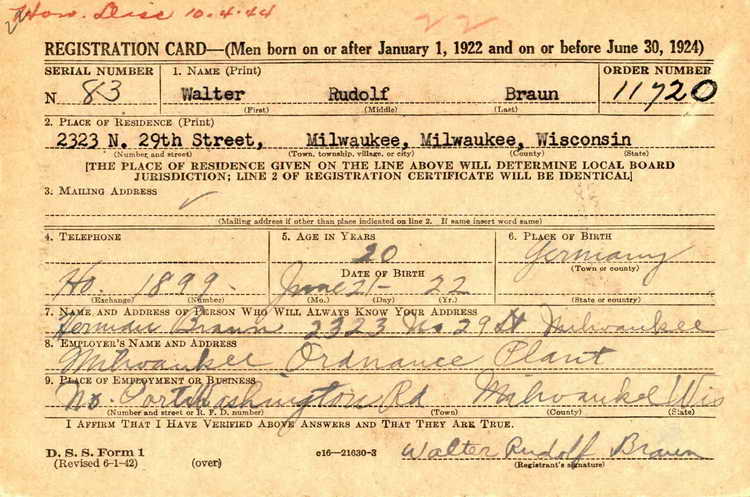 Hon. Disc 10.4.44
22
REGISTRATION CARD—(Men born on or after January 1, 1922 and on or before June 30, 1924)
SERIAL NUMBER 1. NAME (Print) ORDER NUMBER
N 83 Walter Rudolf Braun 11720
(First) (Middle) (Last)
2. PLACE OF RESIDENCE (Print)
2323 N. 29th Street, Milwaukee, Milwaukee, Wisconsin
(Number and street) (Town, township, village, or city) (County) (State)
[THE PLACE OF RESIDENCE GIVEN ON THE LINE ABOVE WILL DETERMINE LOCAL BOARD
JURISDICTION; LINE 2 OF REGISTRATION CERTIFICATE WILL BE IDENTICAL]
3. MAILING ADDRESS
(Mailing address if other than place indicated on line 2. If same insert word same)
4. TELEPHONE 5. AGE IN YEARS 6. PLACE OF BIRTH
20 Germany
DATE OF BIRTH (Town or county)
Ho. 1899 June 21- 22
(Exchange) (Number) (Mo.) (Day) (Yr.) (State or country)
7. NAME AND ADDRESS OF PERSON WHO WILL ALWAYS KNOW YOUR ADDRESS
Herman Braun 2323 No 29 St Milwaukee
8. EMPLOYER'S NAME AND ADDRESS
Milwaukee Ordnance Plant
9. PLACE OF EMPLOYMENT OR BUSINESS
No. Port Washington Rd Milwaukee Wis
(Number and street or R. F. D. number) (Town) (County) (State)
I AFFIRM THAT I HAVE VERIFIED ABOVE ANSWERS AND THAT THEY ARE TRUE.
D. S. S. Form 1
(Revised 6-1-42) (over) c16—21630-3 Walter Rudolf Braun
(Registrant's signature)